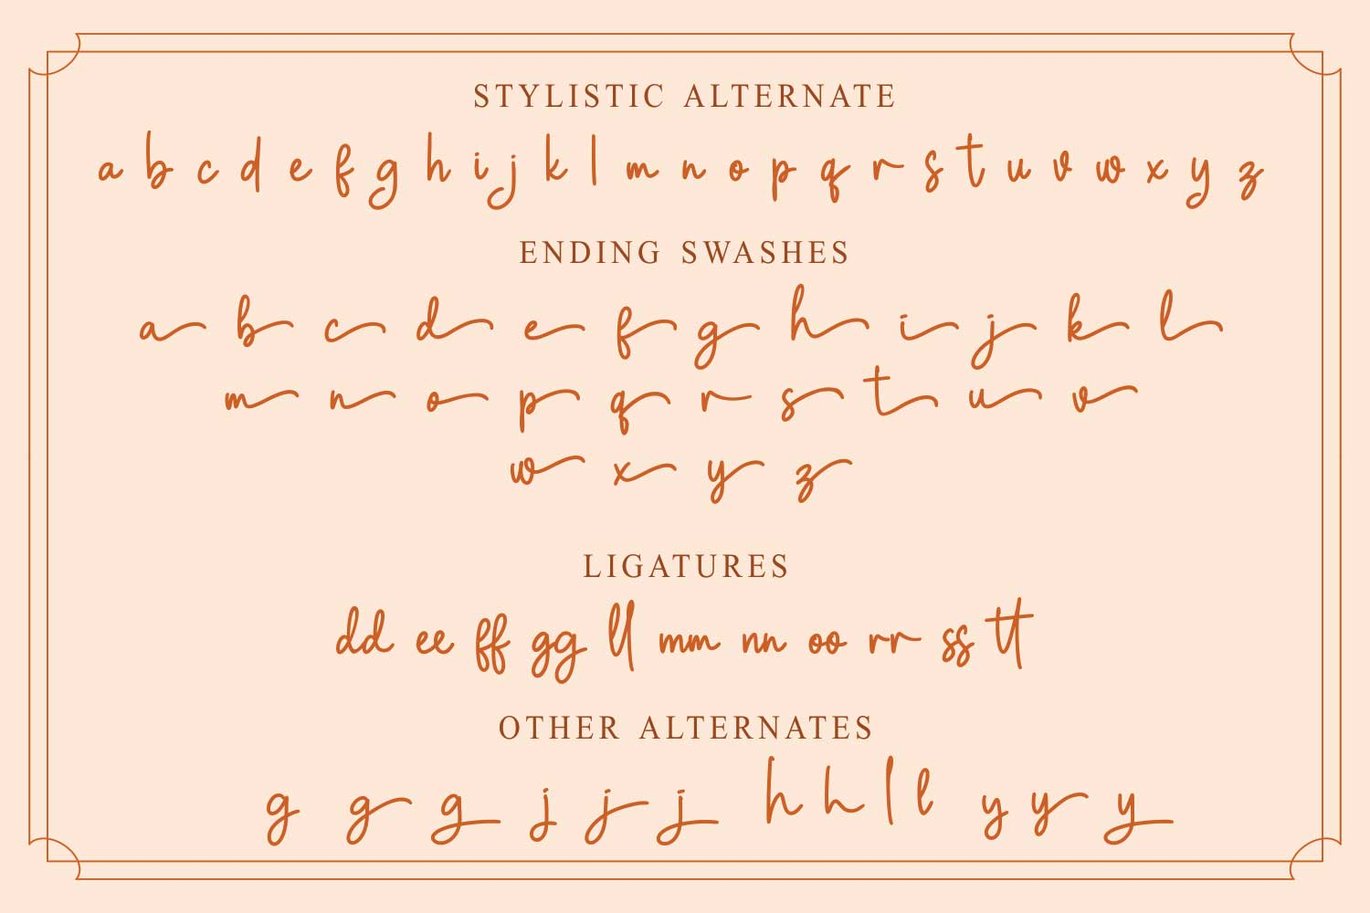 STYLISTIC ALTERNATE
a b c d e f g h i j k l m n o p q r s t u v w x y z
ENDING SWASHES
a b c d e f g h i j k l
m n o p q r s t u v
w x y z
LIGATURES
dd ee ff gg ll mm nn oo rr ss tt
OTHER ALTERNATES
g g g j j j h h l l y y y